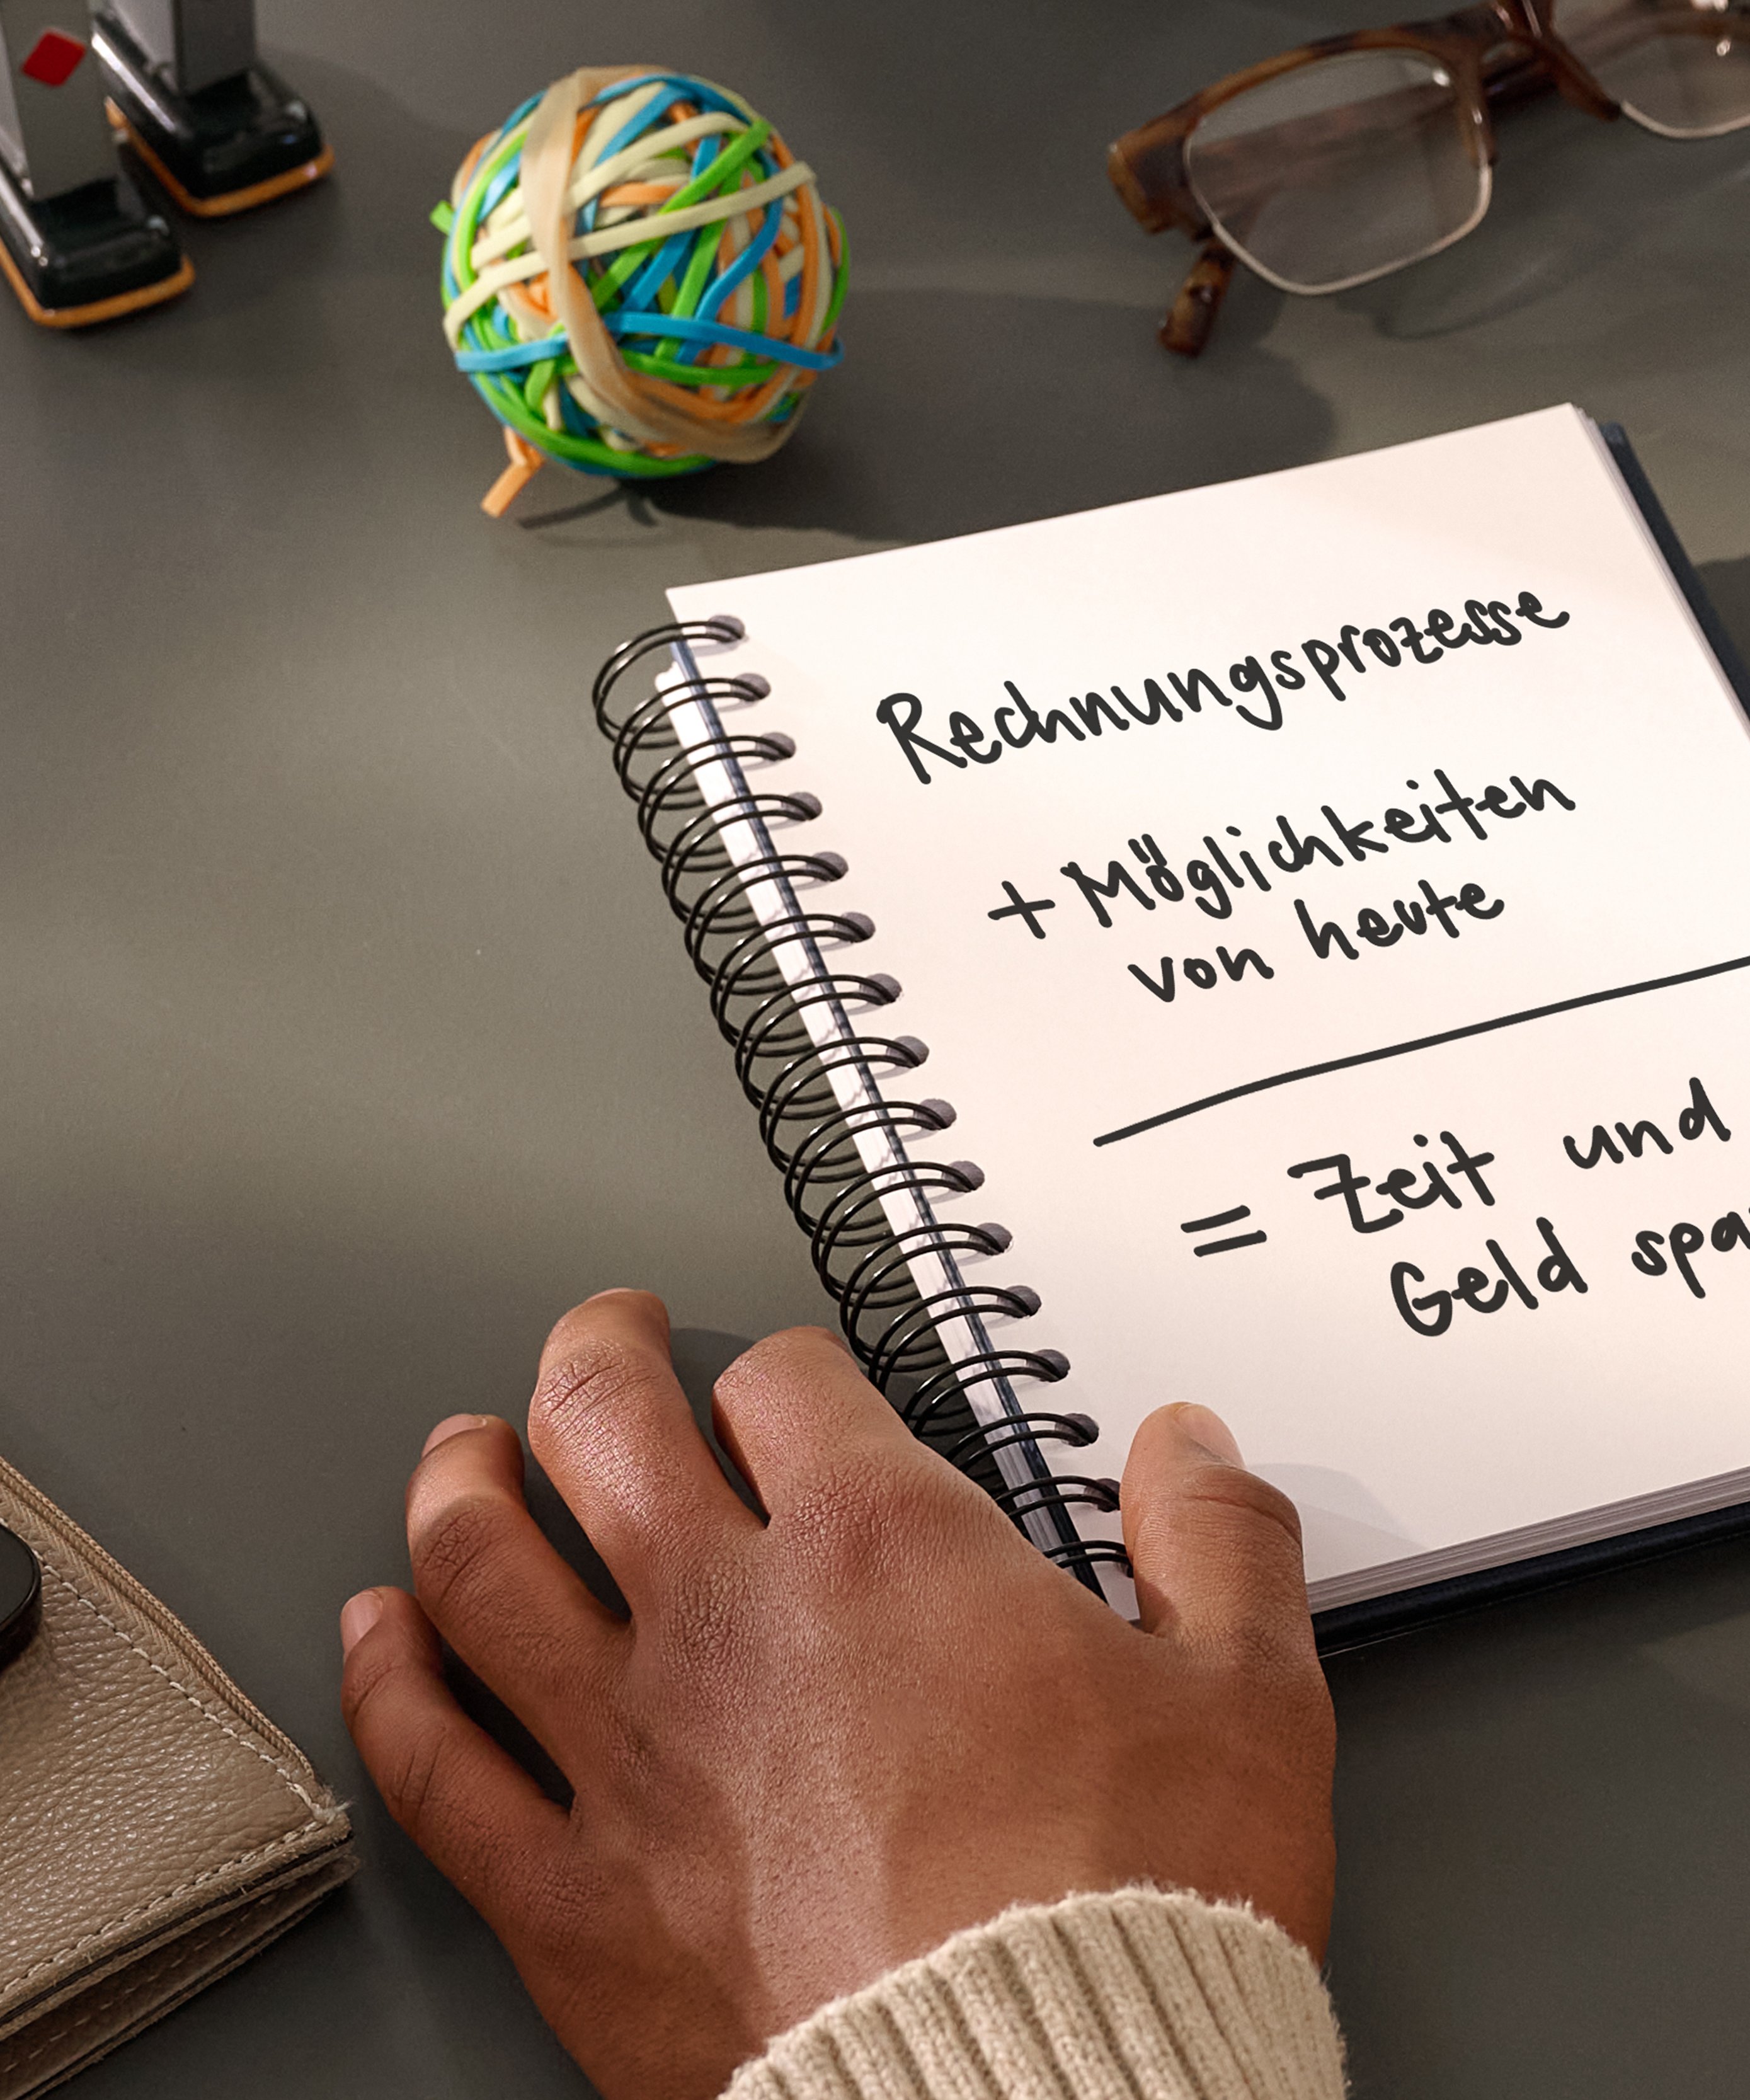 Rechnungsprozesse
+ Möglichkeiten
von heute
= Zeit und
Geld spa